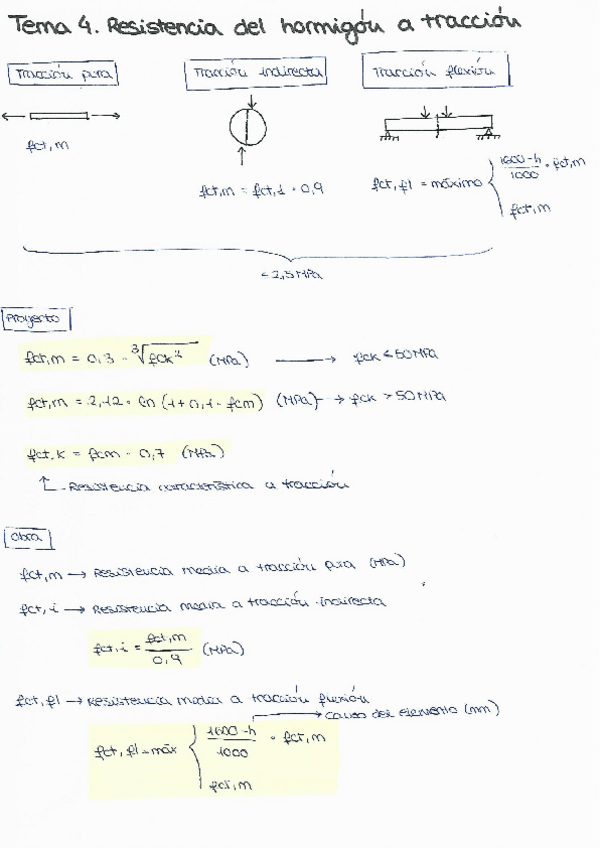 Tema 4. Resistencia del hormigón a tracción
Tracción pura
Tracción indirecta
Tracción flexión
fct,m
fct,m = fct,i · 0,9
fct,fl = máximo { 1600-h/1000 · fct,m
fct,m
< 2,5 MPa
Proyecto
fct,m = 0,3 · ∛fck² (MPa) → fck ≤ 50 MPa
fct,m = 2,12 · ln (1+0,1· fcm) (MPa) → fck > 50 MPa
fct,k = fcm · 0,7 (MPa)
Resistencia característica a tracción
Obra
fct,m → Resistencia media a tracción pura (MPa)
fct,i → Resistencia media a tracción indirecta
fct,i = fct,m/0,9 (MPa)
fct,fl → Resistencia media a tracción flexión
→ canto del elemento (mm)
fct,fl = máx { 1600-h/1000 · fct,m
fct,m